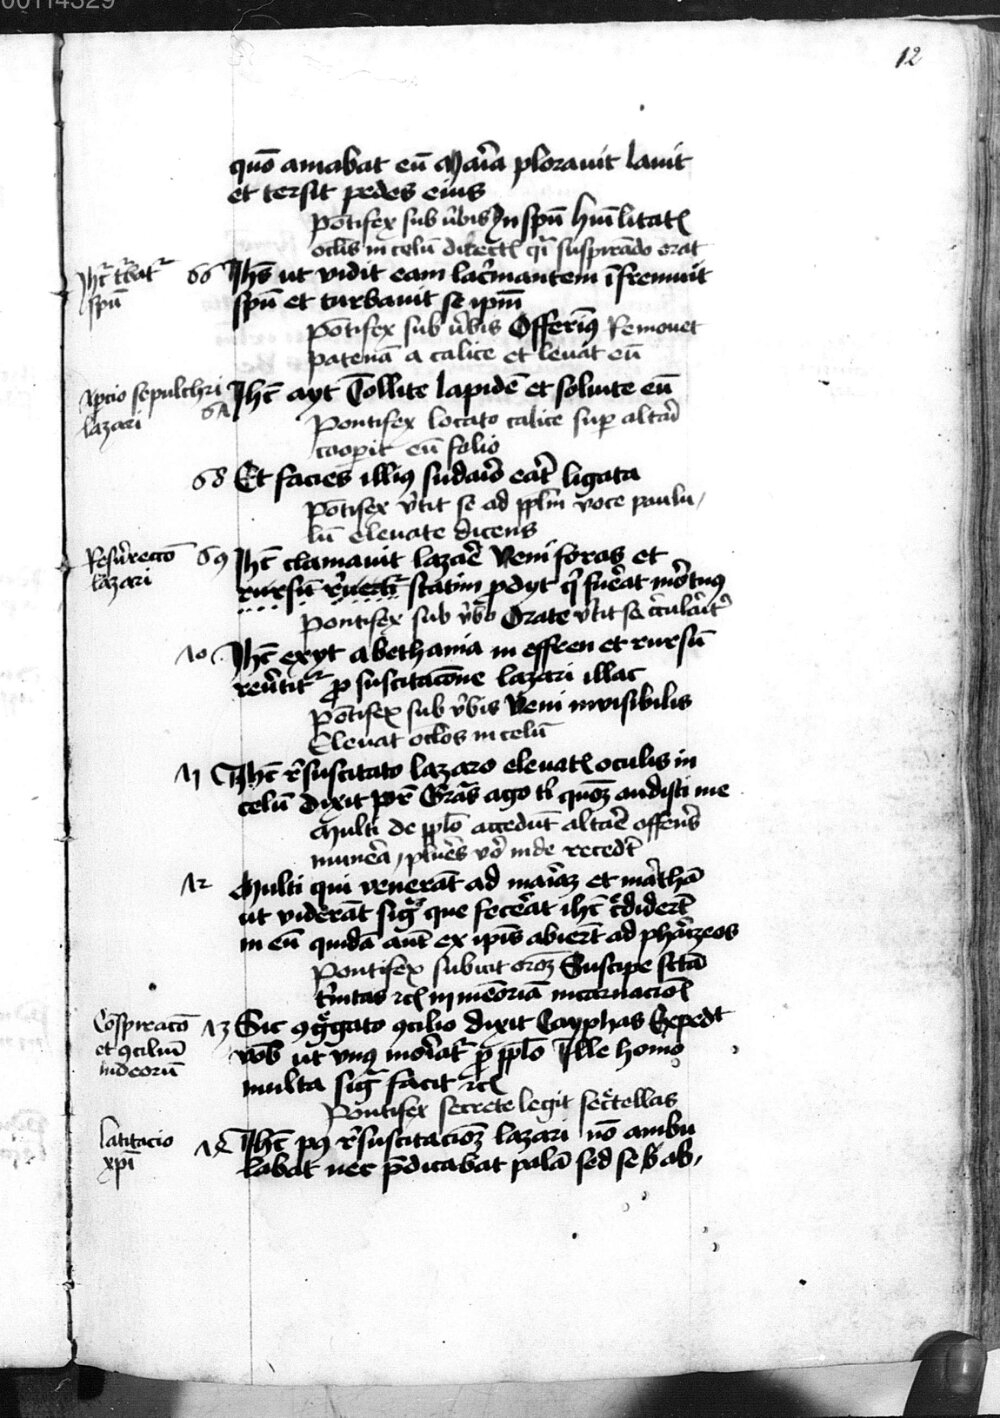 00114329
12
quō amabat eū Maria ploravit lavit
et tersit pedes eius
Pōtifex sub v̄bis In spū hūilitatꝭ
oclis in celū directꝭ qͥ suspirādo orat
Jhc̄ t̄batr
spū
66 Jhs ut vidit eam lac̄mantem īfremuit
spū et turbavit se ipm̄
Pōtifex sub v̄bis Offerim9 Removet
patenā a calice et levat eū
Apcio sepulchri
lazari
67 Jhc̄ ayt Tollite lapidē et solvite eū
Pontifex locato calice sup altari
cooperit eū folio
68 Et facies illi9 sudario erat ligata
Pōtifex v̄tit se ad pplm̄ voce paulu
lū elevate dicens
Resurreccō
lazari
69 Jhc̄ clamavit lazare Veni foras et
rursū revertr̄ statim pdyt qͥ fuerat mortuus
Pontifex sub v̄bo Orate v̄tit se circularitr̄
70 Jhc̄ exyt a bethania in effren et rursū
revertitr ꝓ suscitacōne lazari illac
Pōtifex sub v̄bis Veni invisibilis
Elevat oclos in celū
71 Jhc̄ r̄suscitato lazaro elevatꝭ oculis in
celū dixit pr̄ Gr̄as ago tͥ qm̄ audisti me
Multi de pplo accedūt altare offerēs
munera, plures vo inde recedūt
72 Multi qui venerāt ad mariā et marthā
ut viderāt sigͣ que fecerat ihc̄ c̄diderūt
in eū quidā aut̄ ex ipis abierūt ad phariseos
Pontifex subicit orōꝫ Suscipe sctā
trinitas rcꝭ in mēoriā incarnaciōꝭ
Cōspiracō
et ꝯciliū
iudeorū
73 Sic ꝯgͣgato ꝯcilio dixit Cayphas Expedit
vob ut un9 moriatr ꝓ pplo Ille homo
multa sigͣ facit rcꝭ
Pontifex secrete legit secretellas
latitacio
xpi
74 Jhc̄ p9 r̄suscitaciōꝫ lazari nō ambu
labat nec p̄dicabat palā sed se ab